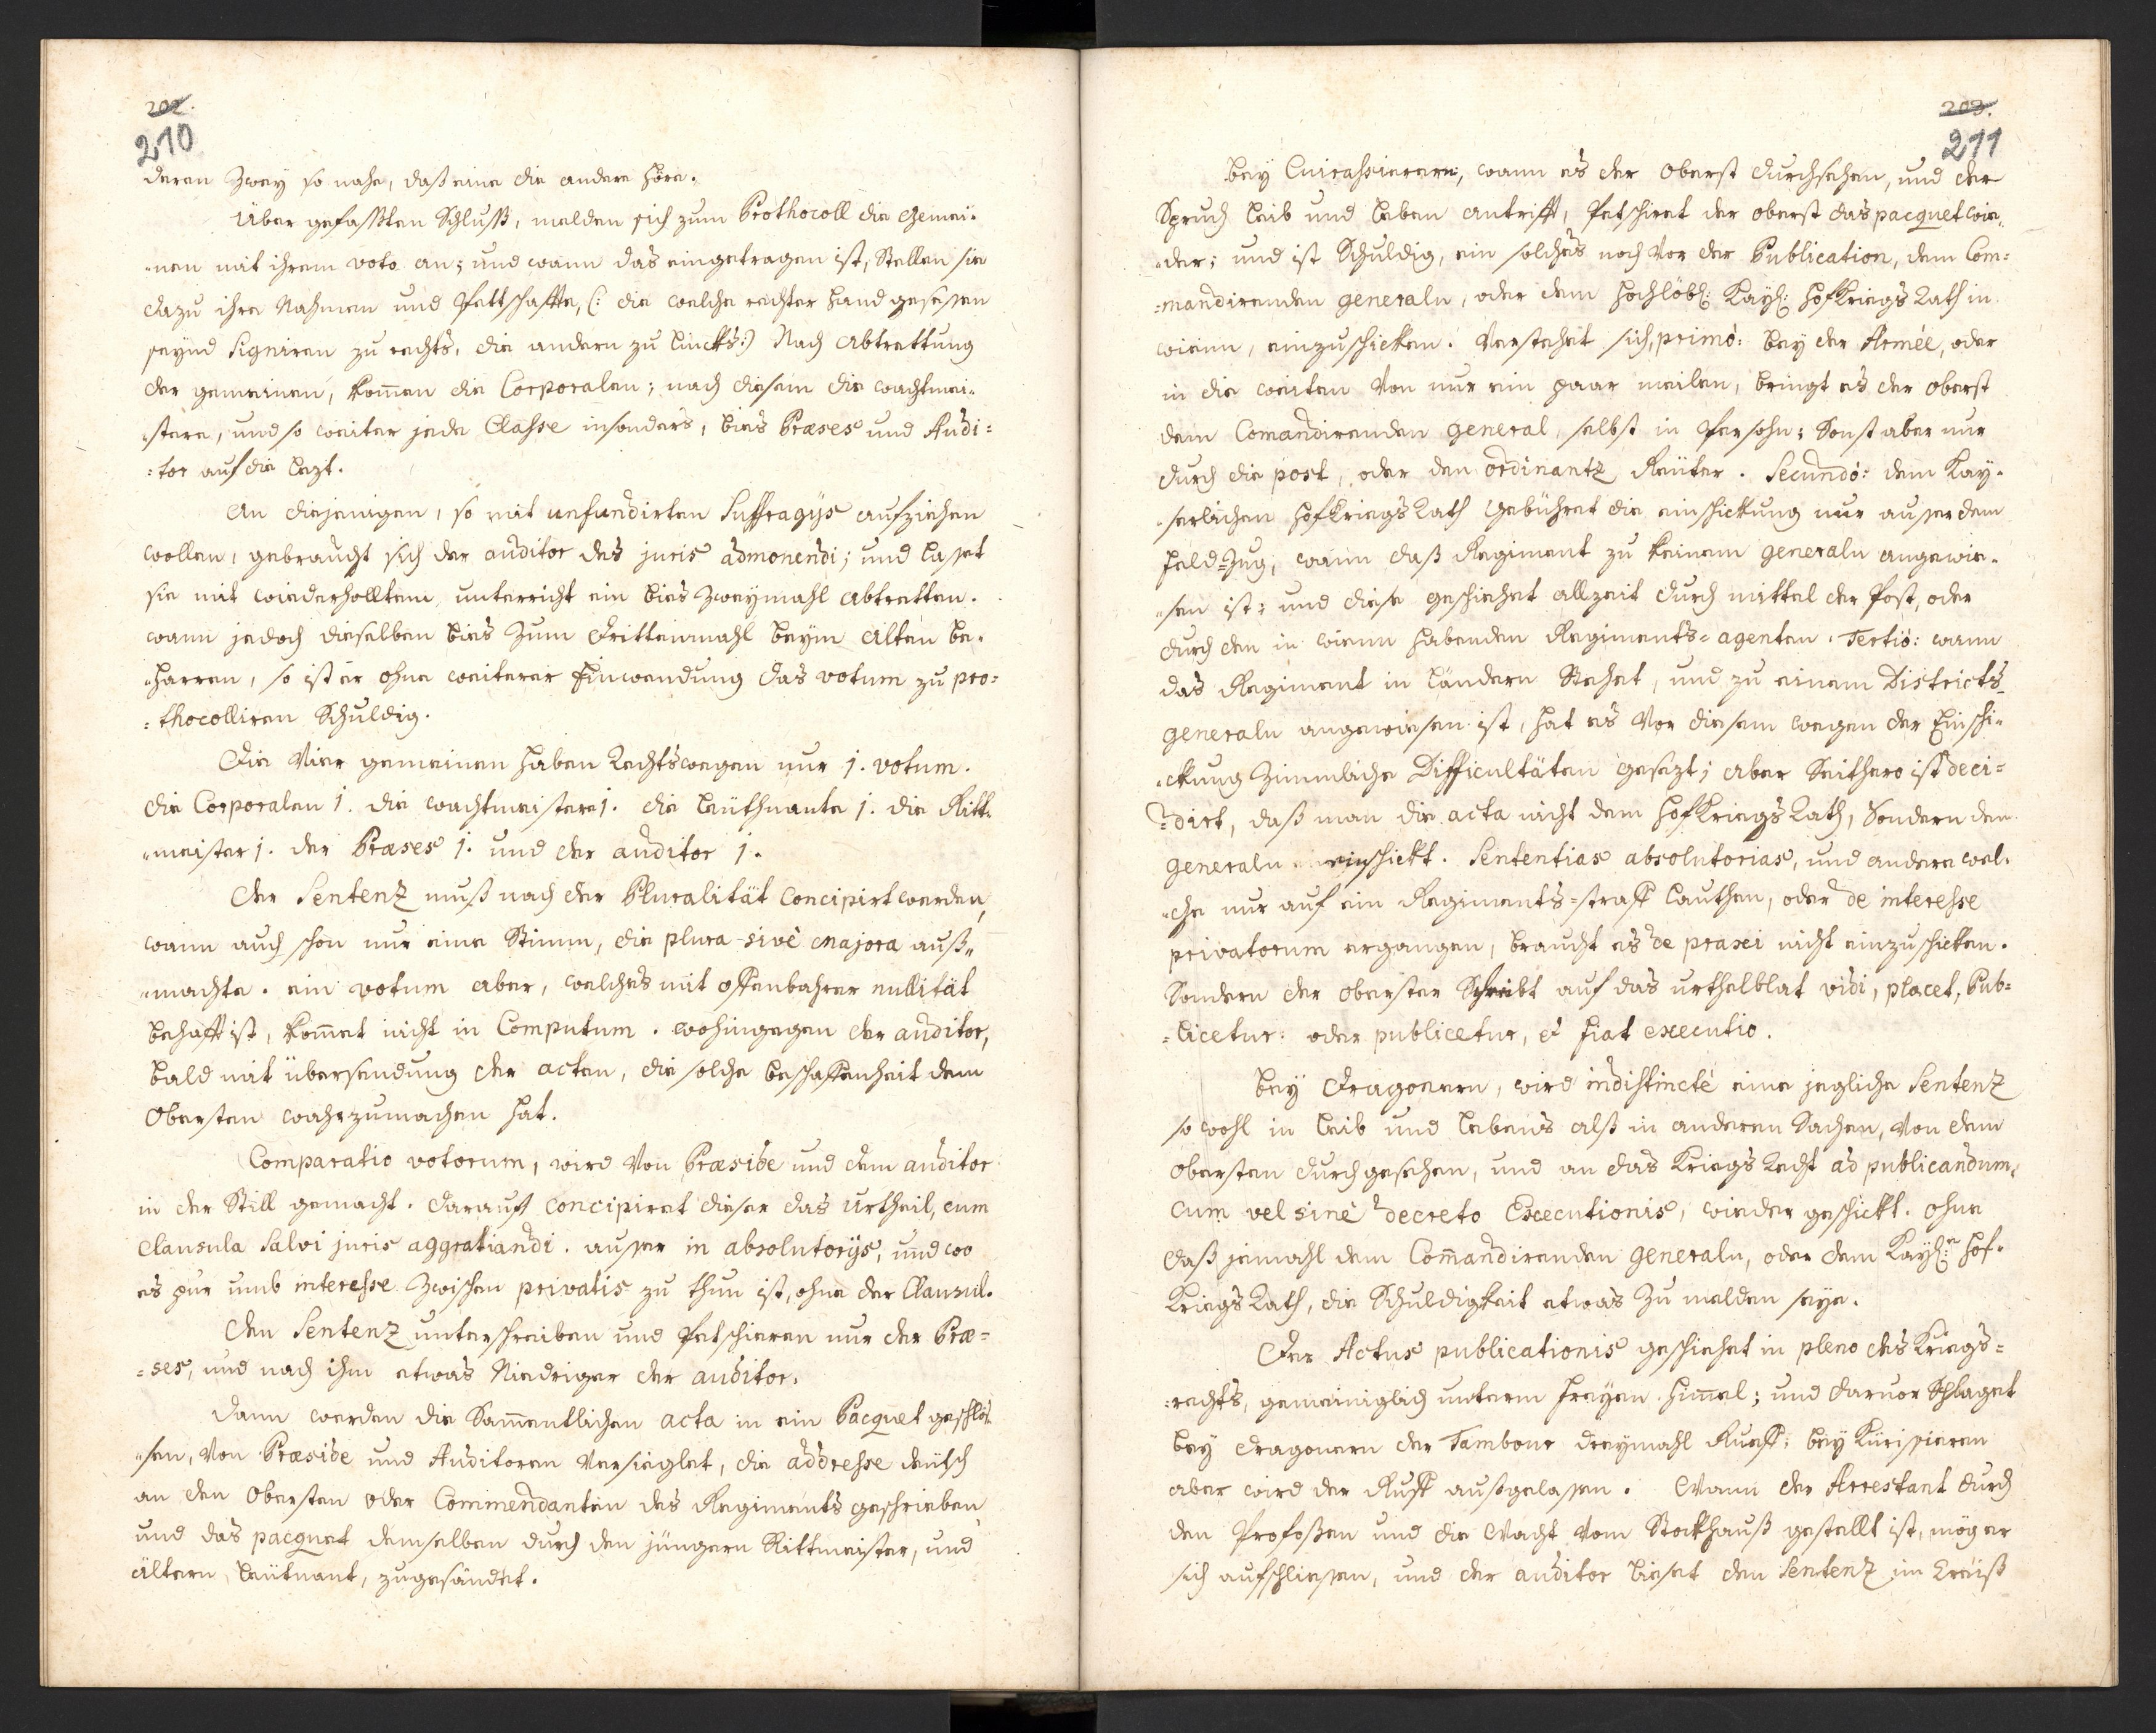 202.
210
deren Zwey so nahe, daß eine die andere höre.
Über gefaßten Schluß, melden sich zum Prothocoll die Gemei-
-nen mit ihrem voto an; und wann das eingetragen ist, Stellen sie
dazu ihre Nahmen und Pettschaffte, (: die welche rechter Hand gesessen
seynd Signiren zu rechts, die andern zu lincks:) Nach Abtrettung
der gemeinen, kom̄en die Corporalen; nach diesem die Wachtmei-
-stere, und so weiter jede Classe insonders, bies Præses und Audi=
=tor auf die lezt.
An diejenigen, so mit unfundirten Suffragijs aufziehen
wollen, gebraucht sich der auditor des juris admonendi; und lasset
sie mit wiederholltem unterricht ein bies Zweymahl abtretten.
wann jedoch dieselben bies Zum Drittenmahl beym Alten be-
-harren, so ist er ohne weiterer Einwendung das votum zu pro=
=thocolliren Schuldig.
Die Vier gemeinen haben Rechtswegen nur 1. votum.
die Corporalen 1. die wachtmeistere 1. die Leuthnante 1. die Ritt-
-meister 1. der Præses 1. und der auditor 1.
Der Sentenz muß nach der Pluralität concipirt werden,
wann auch schon nur eine Stimm, die plura sivè majora auß-
-machte. ein votum aber, welches mit offenbahrer nullität
behafft ist, kom̄et nicht in Computum. wohingegen der auditor,
bald mit übersendung der acten, die solche beschaffenheit dem
Obersten wahrzumachen hat.
Comparatio votorum, wird von Præside und dem auditor
in der Still gemacht. darauf concipiret dieser das Urtheil, cum
Clausula Salvi juris aggratiandi. ausser in absolutorijs, und wo
es pur umb interesse Zwischen privatis zu thun ist, ohne der Clausul.
Den Sentenz unterschreiben und Petschieren nur der Præ=
=ses, und nach ihm etwas Niedriger der auditor.
Dann werden die Sam̄entlichen acta in ein Pacquet geschlos-
-sen, von Præside und Auditoren Versieglet, die addresse deutsch
an den Obersten oder Commendanten des Regiments geschrieben
und das pacquet demselben durch den jüngern Rittmeister, und
ältern Leutnant, zugesändet.
203.
211
Bey Cuirassierern, wann es der Oberst durchsehen, und der
Spruch Leib und Leben antrifft, Petschiret der oberst das pacquet wie-
-der; und ist Schuldig, ein solches noch vor der Publication, dem Com=
=mandirenden generaln, oder dem hochlöbl: Kayl: HofKriegsRath in
wienn, einzuschicken. Verstehet sich, primò: bey der Armée, oder
in die weiten von nur ein paar meilen, bringt es der oberst
dem Comandirenden general, selbst in Persohn; Sonst aber nur
durch die post, oder den ordinantz Reüter. Secundò: dem Kay-
-serlichen HofKriegsRath Gebühret die einschickung nur ausser dem
Feld-Zug, wann daß Regiment zu keinem generaln angewie-
-sen ist; und diese geschiehet allzeit durch mittel der Post, oder
durch den in wienn habenden Regiments-agenten. Tertiò: wann
das Regiment in Ländern Stehet, und zu einem Districts-
generaln angewiesen ist, hat es Vor diesem wegen der Einschi-
-ckung Zimmliche Difficultäten gesezt; aber Seithero ist deci=
=dirt, daß man die acta nicht dem HofKriegsRath, Sondern dem
generaln einschickt. Sententias absolutorias, und andere wel-
-che nur auf ein Regiments-straff lauthen, oder de interesse
privatorum ergangen, braucht es de praxi nicht einzuschicken.
Sondern der oberster Schreibt auf das urthelblat vidi, placet, Pub=
=licetur: oder publicetur, et fiat executio.
Bey Dragonern, wird indistinctè eine jegliche Sentenz
so wohl in Leib und Lebens alß in anderen Sachen, von dem
obersten durchgesehen, und an das Kriegs Recht ad publicandum,
cum vel sinè decreto Executionis, wieder geschickt. ohne
daß jemahl dem Com̄andirenden generaln, oder dem Kayl:n Hof-
Kriegs Rath, die Schuldigkeit etwas Zu melden seye.
Der Actus publicationis geschiehet in pleno des Kriegs=
=rechts, gemeiniglich unterm freyen Him̄el; und daruor Schlaget
bey dragonern der Tambour dreymahl Rueff; bey Kürissieren
aber wird der Ruff außgelassen. Wann der Arrestant durch
den Profoßen und die Wacht vom Stockhauß gestellt ist, mög er
sich aufschliessen, und der auditor lieset den Sentenz im Creiß